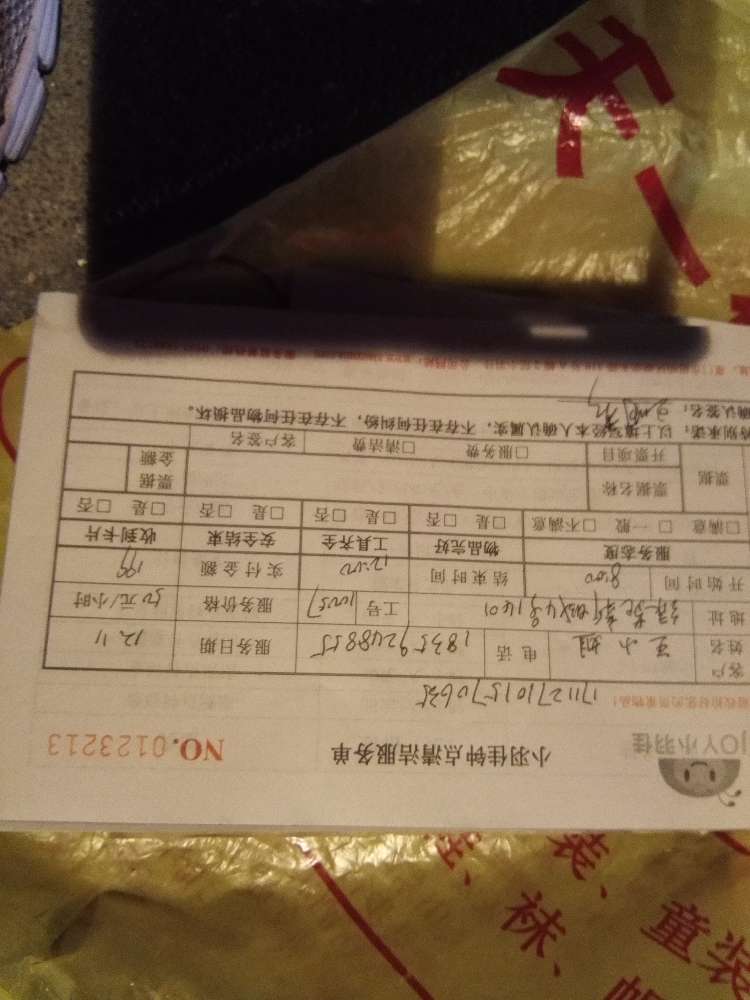 JOY小羽佳
小羽佳钟点清洁服务单
NO.0123213
171127101570635
客户姓名 王小姐 电话 18359248855 服务日期 12.11
地址 工号 10057 服务价格 50元/小时
开始时间 8:00 结束时间 12:00 实付金额 199
服务态度 物品完好 工具齐全 安全结束 收到卡片
□满意 □一般 □不满意 □是 □否 □是 □否 □是 □否 □是 □否
票据 票据名称 票据金额
开票项目 □服务费 □清洁费 客户签名
特别承诺：以上填写经本人确认属实，不存在任何纠纷，不存在任何物品损坏。
确认签名：
天一
装、童装
袜、帽